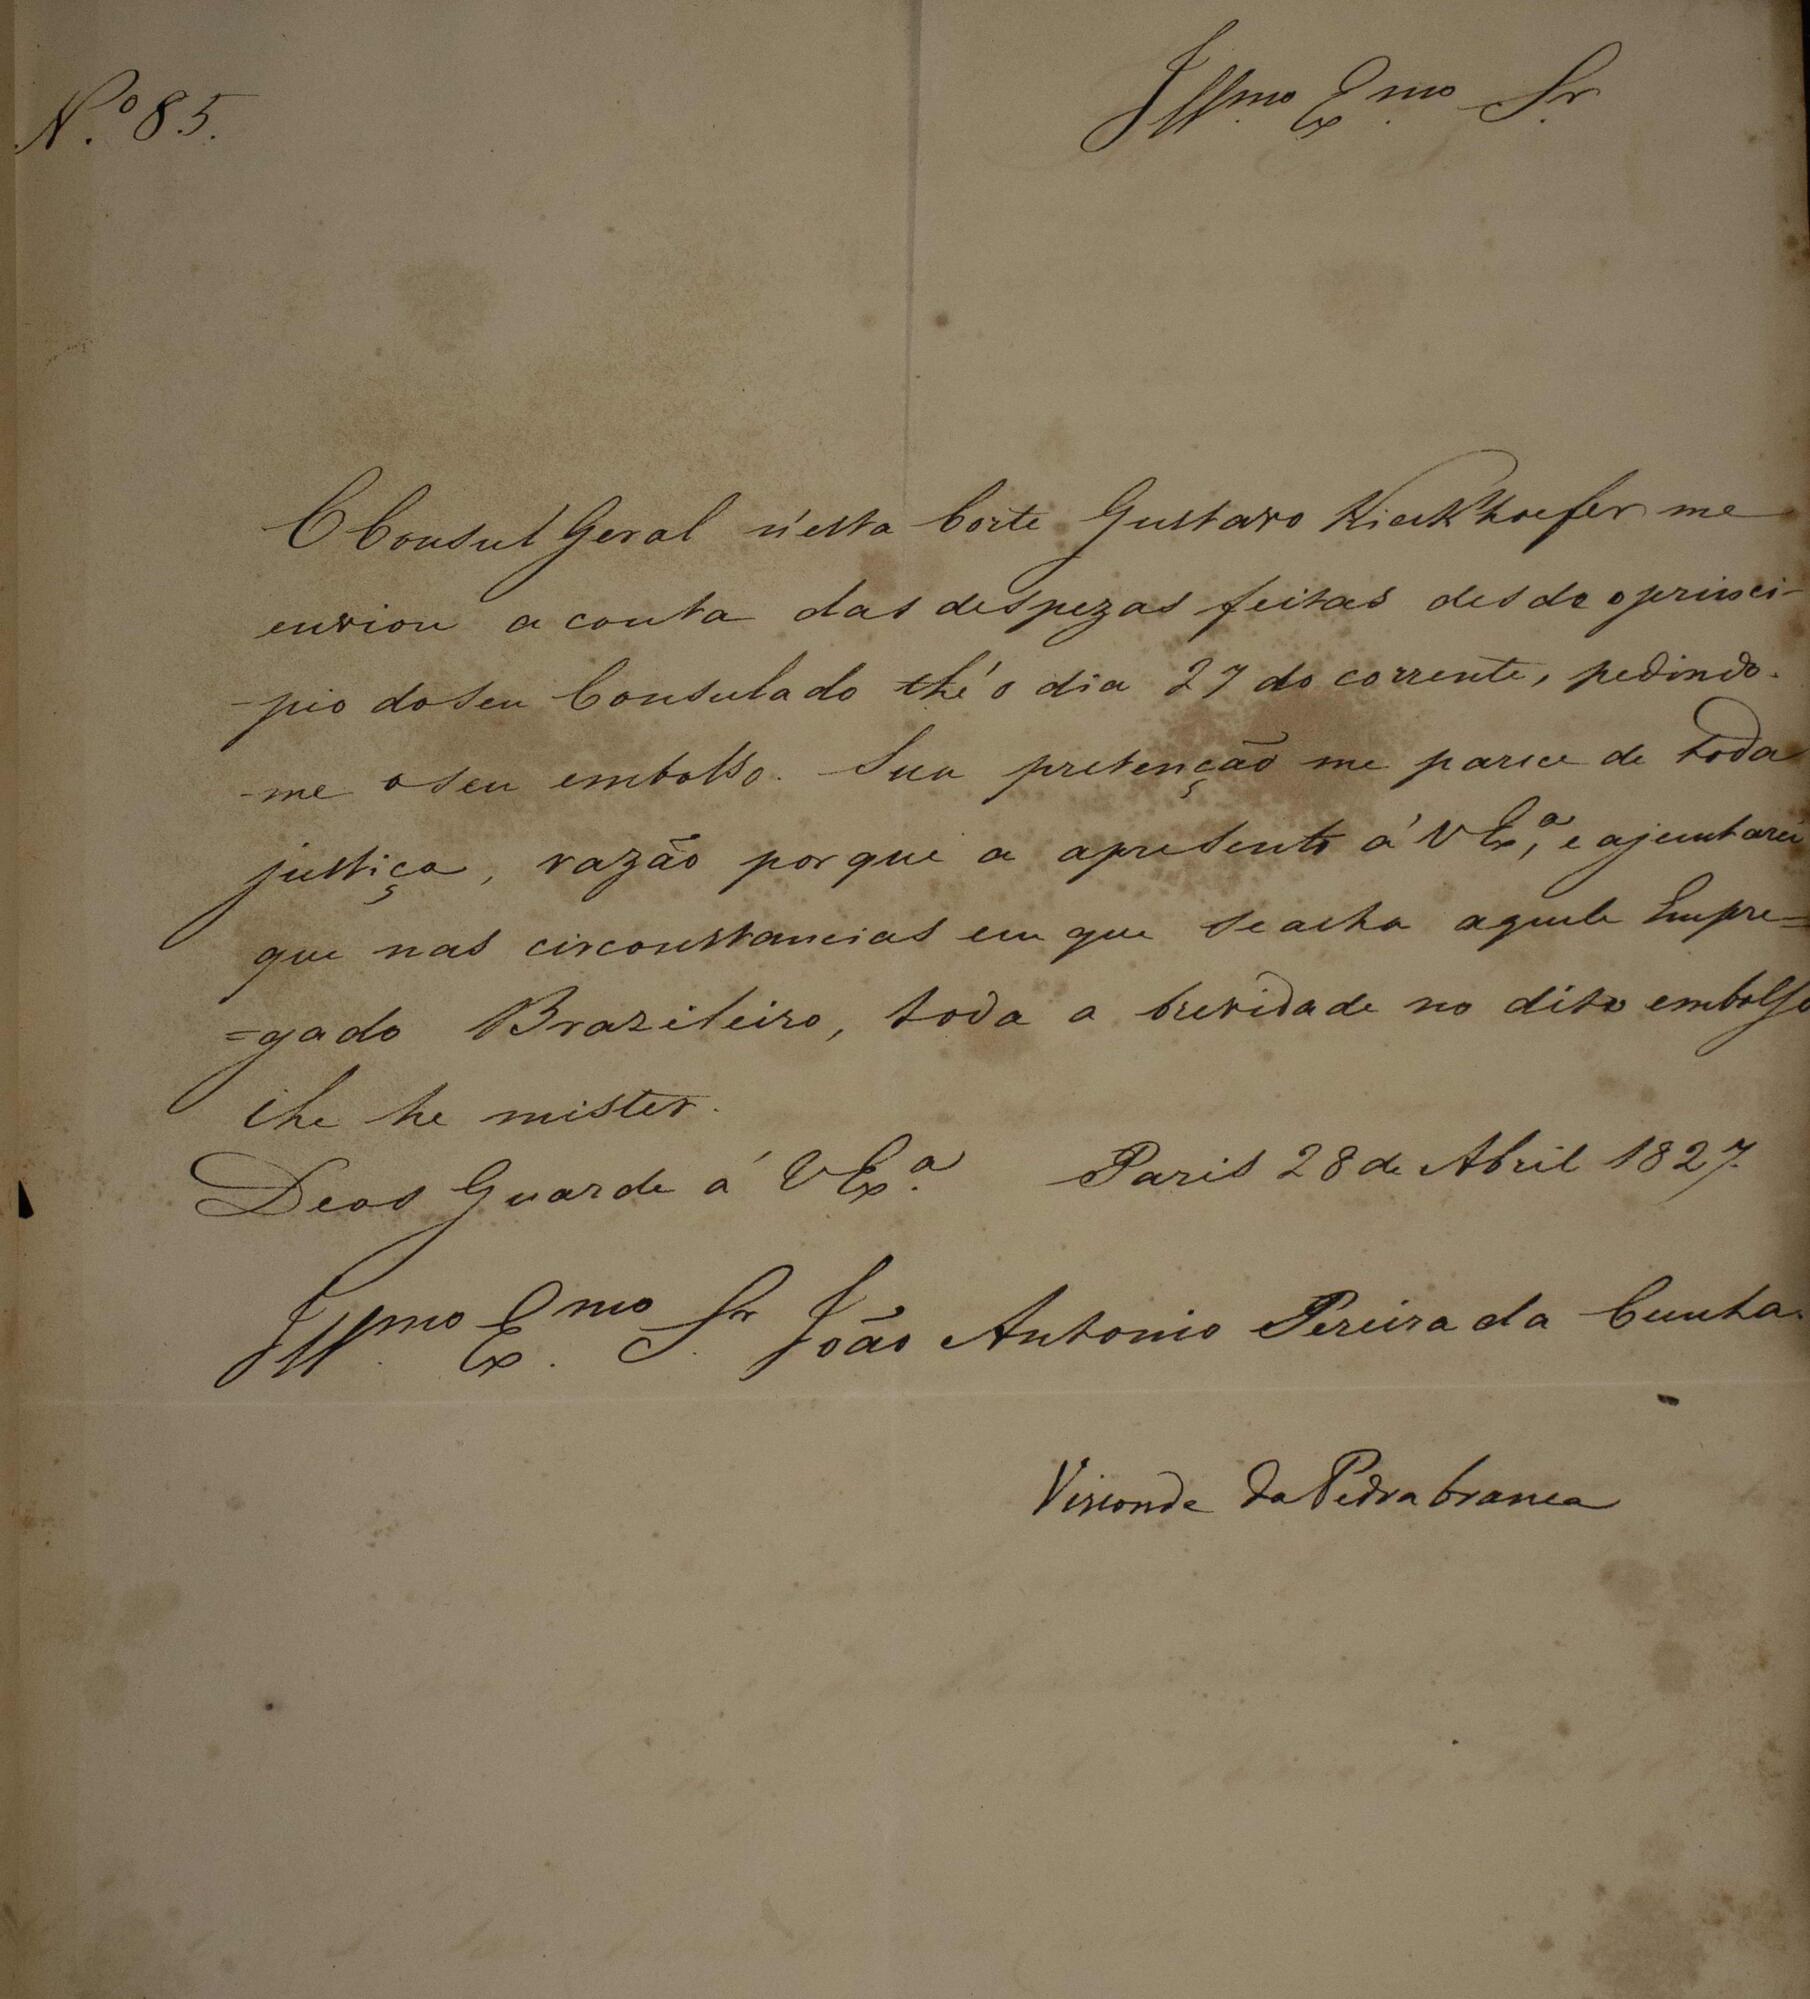 N.º 85.
Illmo Exmo Sr.
O Consul Geral n'esta Corte Gustavo Kieckhoefer me
enviou a conta das despezas feitas desde o princi-
-pio do seu Consulado thé o dia 27 do corrente, pedindo-
-me o seu embolso. Sua pretenção me parece de toda
justiça, razão porque a apresento á V Ex.ª, e ajuntarei
que nas circonstancias em que se acha aquele Empre=
=gado Brazileiro, toda a brevidade no dito embolso
lhe he mister.
Deos Guarde á V Ex.ª Paris 28 de Abril 1827.
Illmo Exmo Sr. João Antonio Pereira da Cunha.
Visconde da Pedra branca